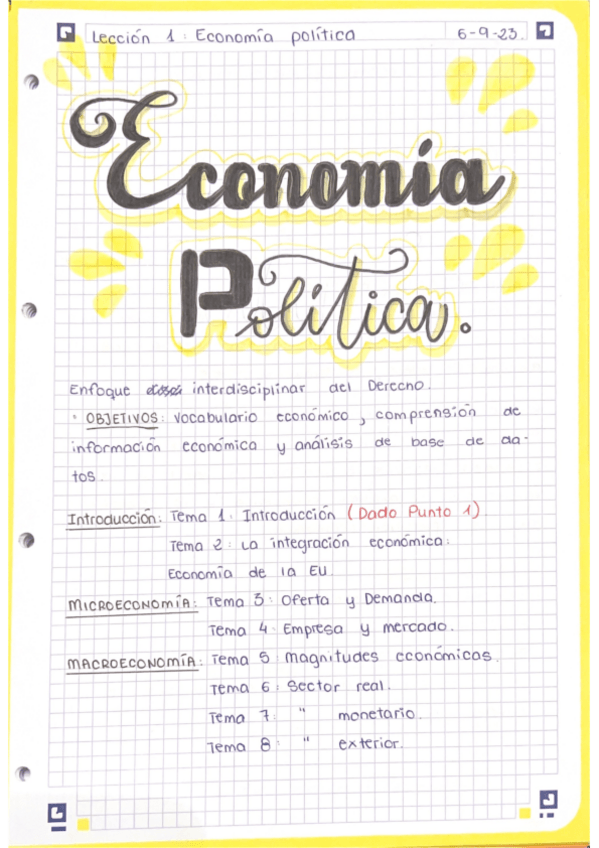 Lección 1: Economía política
6-9-23.
Economía
Política.
Enfoque interdisciplinar del Derecho.
· OBJETIVOS: vocabulario económico, comprensión de
información económica y análisis de base de da-
tos.
Introducción: Tema 1: Introducción (Dado Punto 1)
Tema 2: La integración económica:
Economía de la EU.
MICROECONOMÍA: Tema 3: Oferta y Demanda.
Tema 4: Empresa y mercado.
MACROECONOMÍA: Tema 5: Magnitudes económicas.
Tema 6: Sector real.
Tema 7: " monetario.
Tema 8: " exterior.